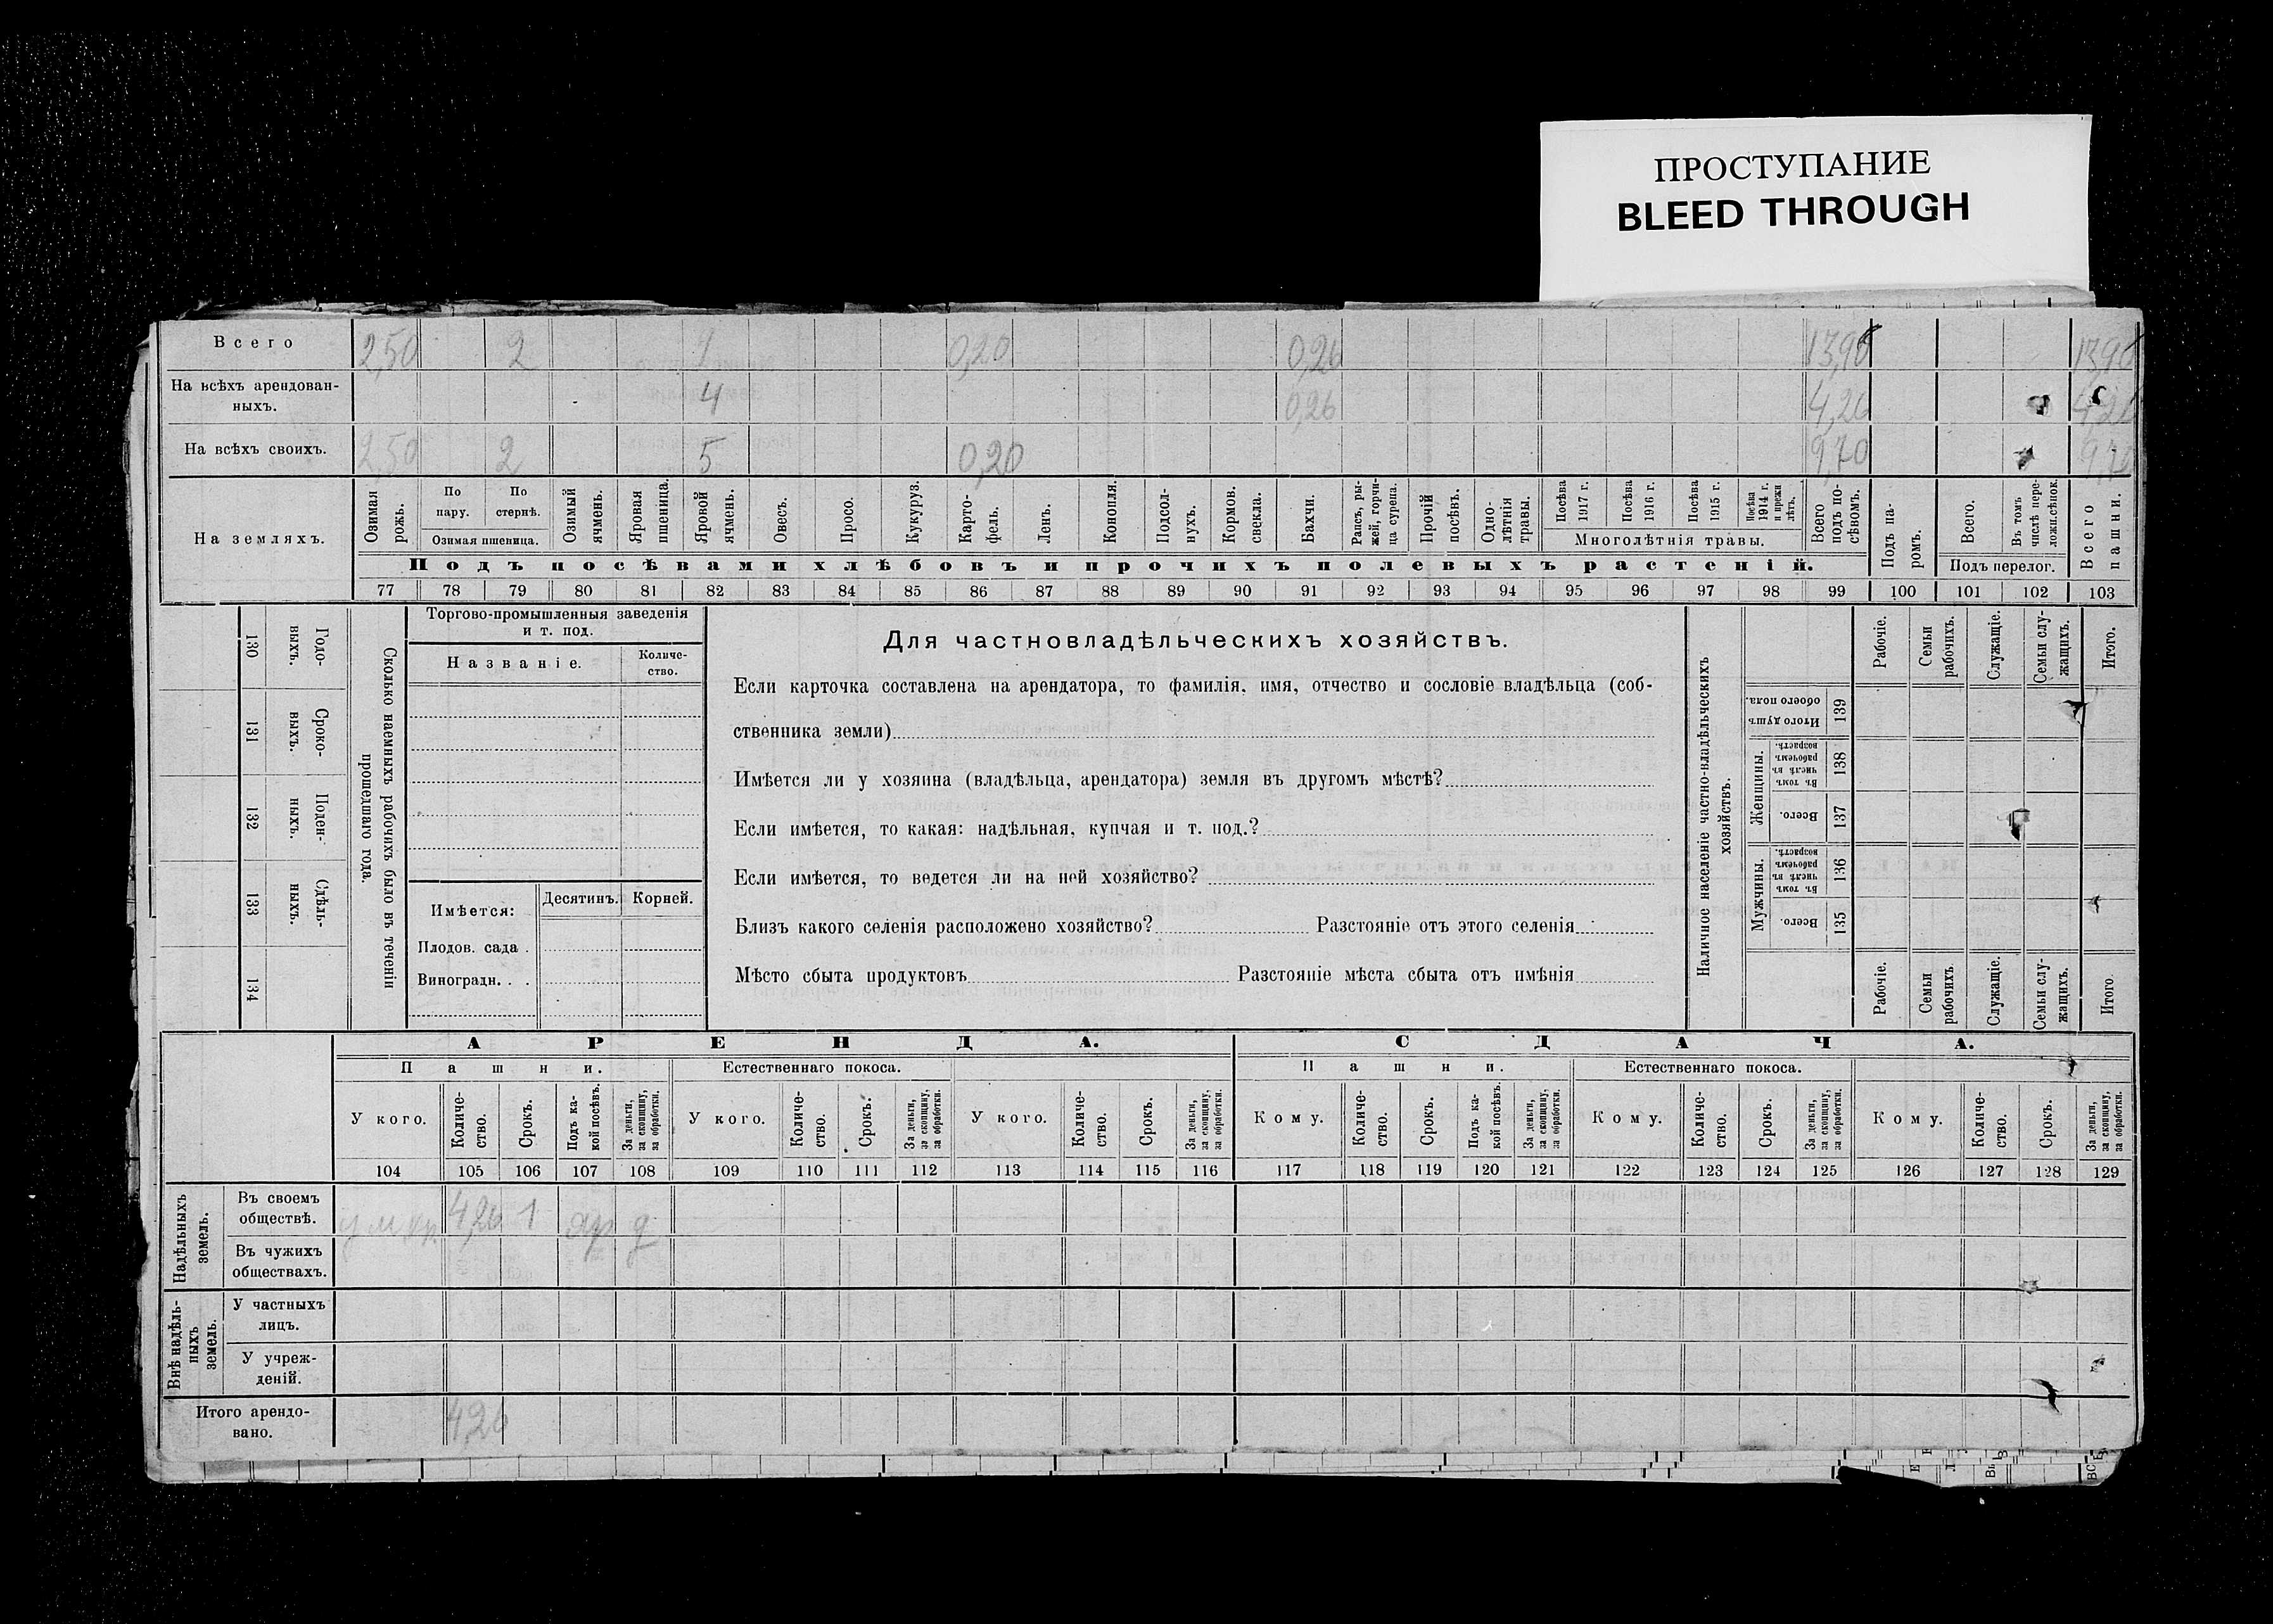 ПРОСТУПАНИЕ
BLEED THROUGH
Всего 2,50 2 0,20 0,26 13,96 13,96
На всѣхъ арендован-
ныхъ. 4 0,26 4,26 4,26
На всѣхъ своихъ. 2,50 2 5 0,20 9,70 9,70
На земляхъ.
Озимая рожь.
По пару.
По стернѣ.
Озимая пшеница.
Озимый ячмень.
Яровая пшеница.
Яровой ячмень.
Овесъ.
Просо.
Кукуруз.
Карто-
фель.
Ленъ.
Конопля.
Подсол-
нухъ.
Кормов. свекла.
Бахчи.
Рапсъ, ры-
жей, горчи-
ца сурепа.
Прочій посѣвъ.
Одно-
лѣтнія травы.
Посѣва 1917 г.
Посѣва 1916 г.
Посѣва 1915 г.
Посѣва 1914 г. и прежн лѣтъ.
Многолѣтнія травы.
Всего подъ по-
сѣвомъ.
Подъ па-
ромъ.
Всего.
Въ томъ числѣ пере-
ложн.сѣнок.
Подъ перелог.
Всего пашни.
Подъ посѣвами хлѣбовъ и прочихъ полевыхъ растеній.
77 78 79 80 81 82 83 84 85 86 87 88 89 90 91 92 93 94 95 96 97 98 99 100 101 102 103
130 Годо-
выхъ.
131 Сроко-
выхъ.
132 Поден-
ныхъ.
133 Сдѣль-
ныхъ.
134
Сколько наемныхъ рабочихъ было въ теченіи
прошедшаго года.
Торгово-промышленныя заведенія
и т. под.
Названіе.
Количе-
ство.
Имѣется:
Десятинъ. Корней.
Плодов. сада .
Виноградн. . .
Для частновладѣльческихъ хозяйствъ.
Если карточка составлена на арендатора, то фамилія, имя, отчество и сословіе владѣльца (соб-
ственника земли)
Имѣется ли у хозяина (владѣльца, арендатора) земля въ другомъ мѣстѣ?
Если имѣется, то какая: надѣльная, купчая и т. под.?
Если имѣется, то ведется ли на ней хозяйство?
Близъ какого селенія расположено хозяйство? Разстояніе отъ этого селенія
Мѣсто сбыта продуктовъ Разстояніе мѣста сбыта отъ имѣнія
Наличное населеніе частно-владѣльческихъ
хозяйствъ.
Рабочіе.
Семьи рабочихъ.
Служащіе.
Семьи слу-
жащихъ.
Итого.
Итого душъ обоего пола.
139
Женщины.
Въ томъ числѣ въ рабочемъ возрастѣ.
138
Всего.
137
Мужчины.
Въ томъ числѣ въ рабочемъ возрастѣ.
136
Всего.
135
Рабочіе.
Семьи рабочихъ
Служащіе.
Семьи слу-
жащихъ.
Итого
АРЕНДА. СДАЧА.
Пашни. Естественнаго покоса. Пашни. Естественнаго покоса.
У кого.
Количе-
ство.
Срокъ.
Подъ ка-
кой посѣвъ.
За деньги, за скопщину, за обработки.
У кого.
Количе-
ство.
Срокъ.
За деньги, за скопщину, за обработки.
У кого.
Количе-
ство.
Срокъ.
За деньги, за скопщину, за обработки.
Кому.
Количе-
ство.
Срокъ.
Подъ ка-
кой посѣвъ
За деньги, за скопщину, за обработки.
Кому.
Количе-
ство.
Срокъ.
За деньги, за скопщину, за обработки.
Кому.
Количе-
ство.
Срокъ.
За деньги, за скопщину, за обработки.
104 105 106 107 108 109 110 111 112 113 114 115 116 117 118 119 120 121 122 123 124 125 126 127 128 129
Надѣльныхъ земель.
Въ своемъ
обществѣ. 4,26 1
Въ чужихъ
обществахъ.
Внѣ надѣль-
ныхъ земель.
У частныхъ
лицъ.
У учреж-
деній.
Итого арендо-
вано. 4,26